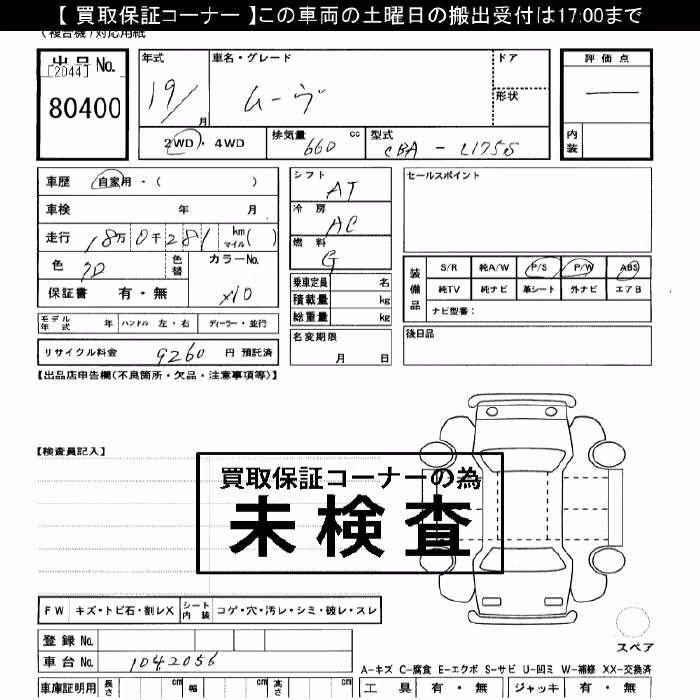 【 買取保証コーナー 】この車両の土曜日の搬出受付は17:00まで
(複合機)対応用紙
出品 No.
[2044]
80400
年式 車名・グレード ドア
19/ 月 ムーヴ 形状
2WD・4WD 排気量 660 cc 型式 CBA - L175S
評価点
内装
車歴 自家用・( )
車検 年 月
走行 18万 0千 281 km マイル ( )
色 色替 カラーNo.
X10
保証書 有・無
モデル年式 年 ハンドル 左・右 ディーラー・並行
リサイクル料金 9260 円 預託済
シフト AT
冷房 AC
燃料 G
乗車定員 名
積載量 kg
総重量 kg
名変期限
月 日
セールスポイント
装備品 S/R 純A/W P/S P/W ABS
純TV 純ナビ 革シート 外ナビ エアB
ナビ型番:
後日品
【出品店申告欄(不良箇所・欠品・注意事項等)】
【検査員記入】
買取保証コーナーの為
未検査
FW キズ・トビ石・割レX シート内装 コゲ・穴・汚レ・シミ・破レ・スレ
登録 No.
車台 No. 1042056
車庫証明用 長さ cm 幅 cm 高さ cm
スペア
A-キズ C-腐食 E-エクボ S-サビ U-凹ミ W-補修 XX-交換済
工具 有・無 ジャッキ 有・無